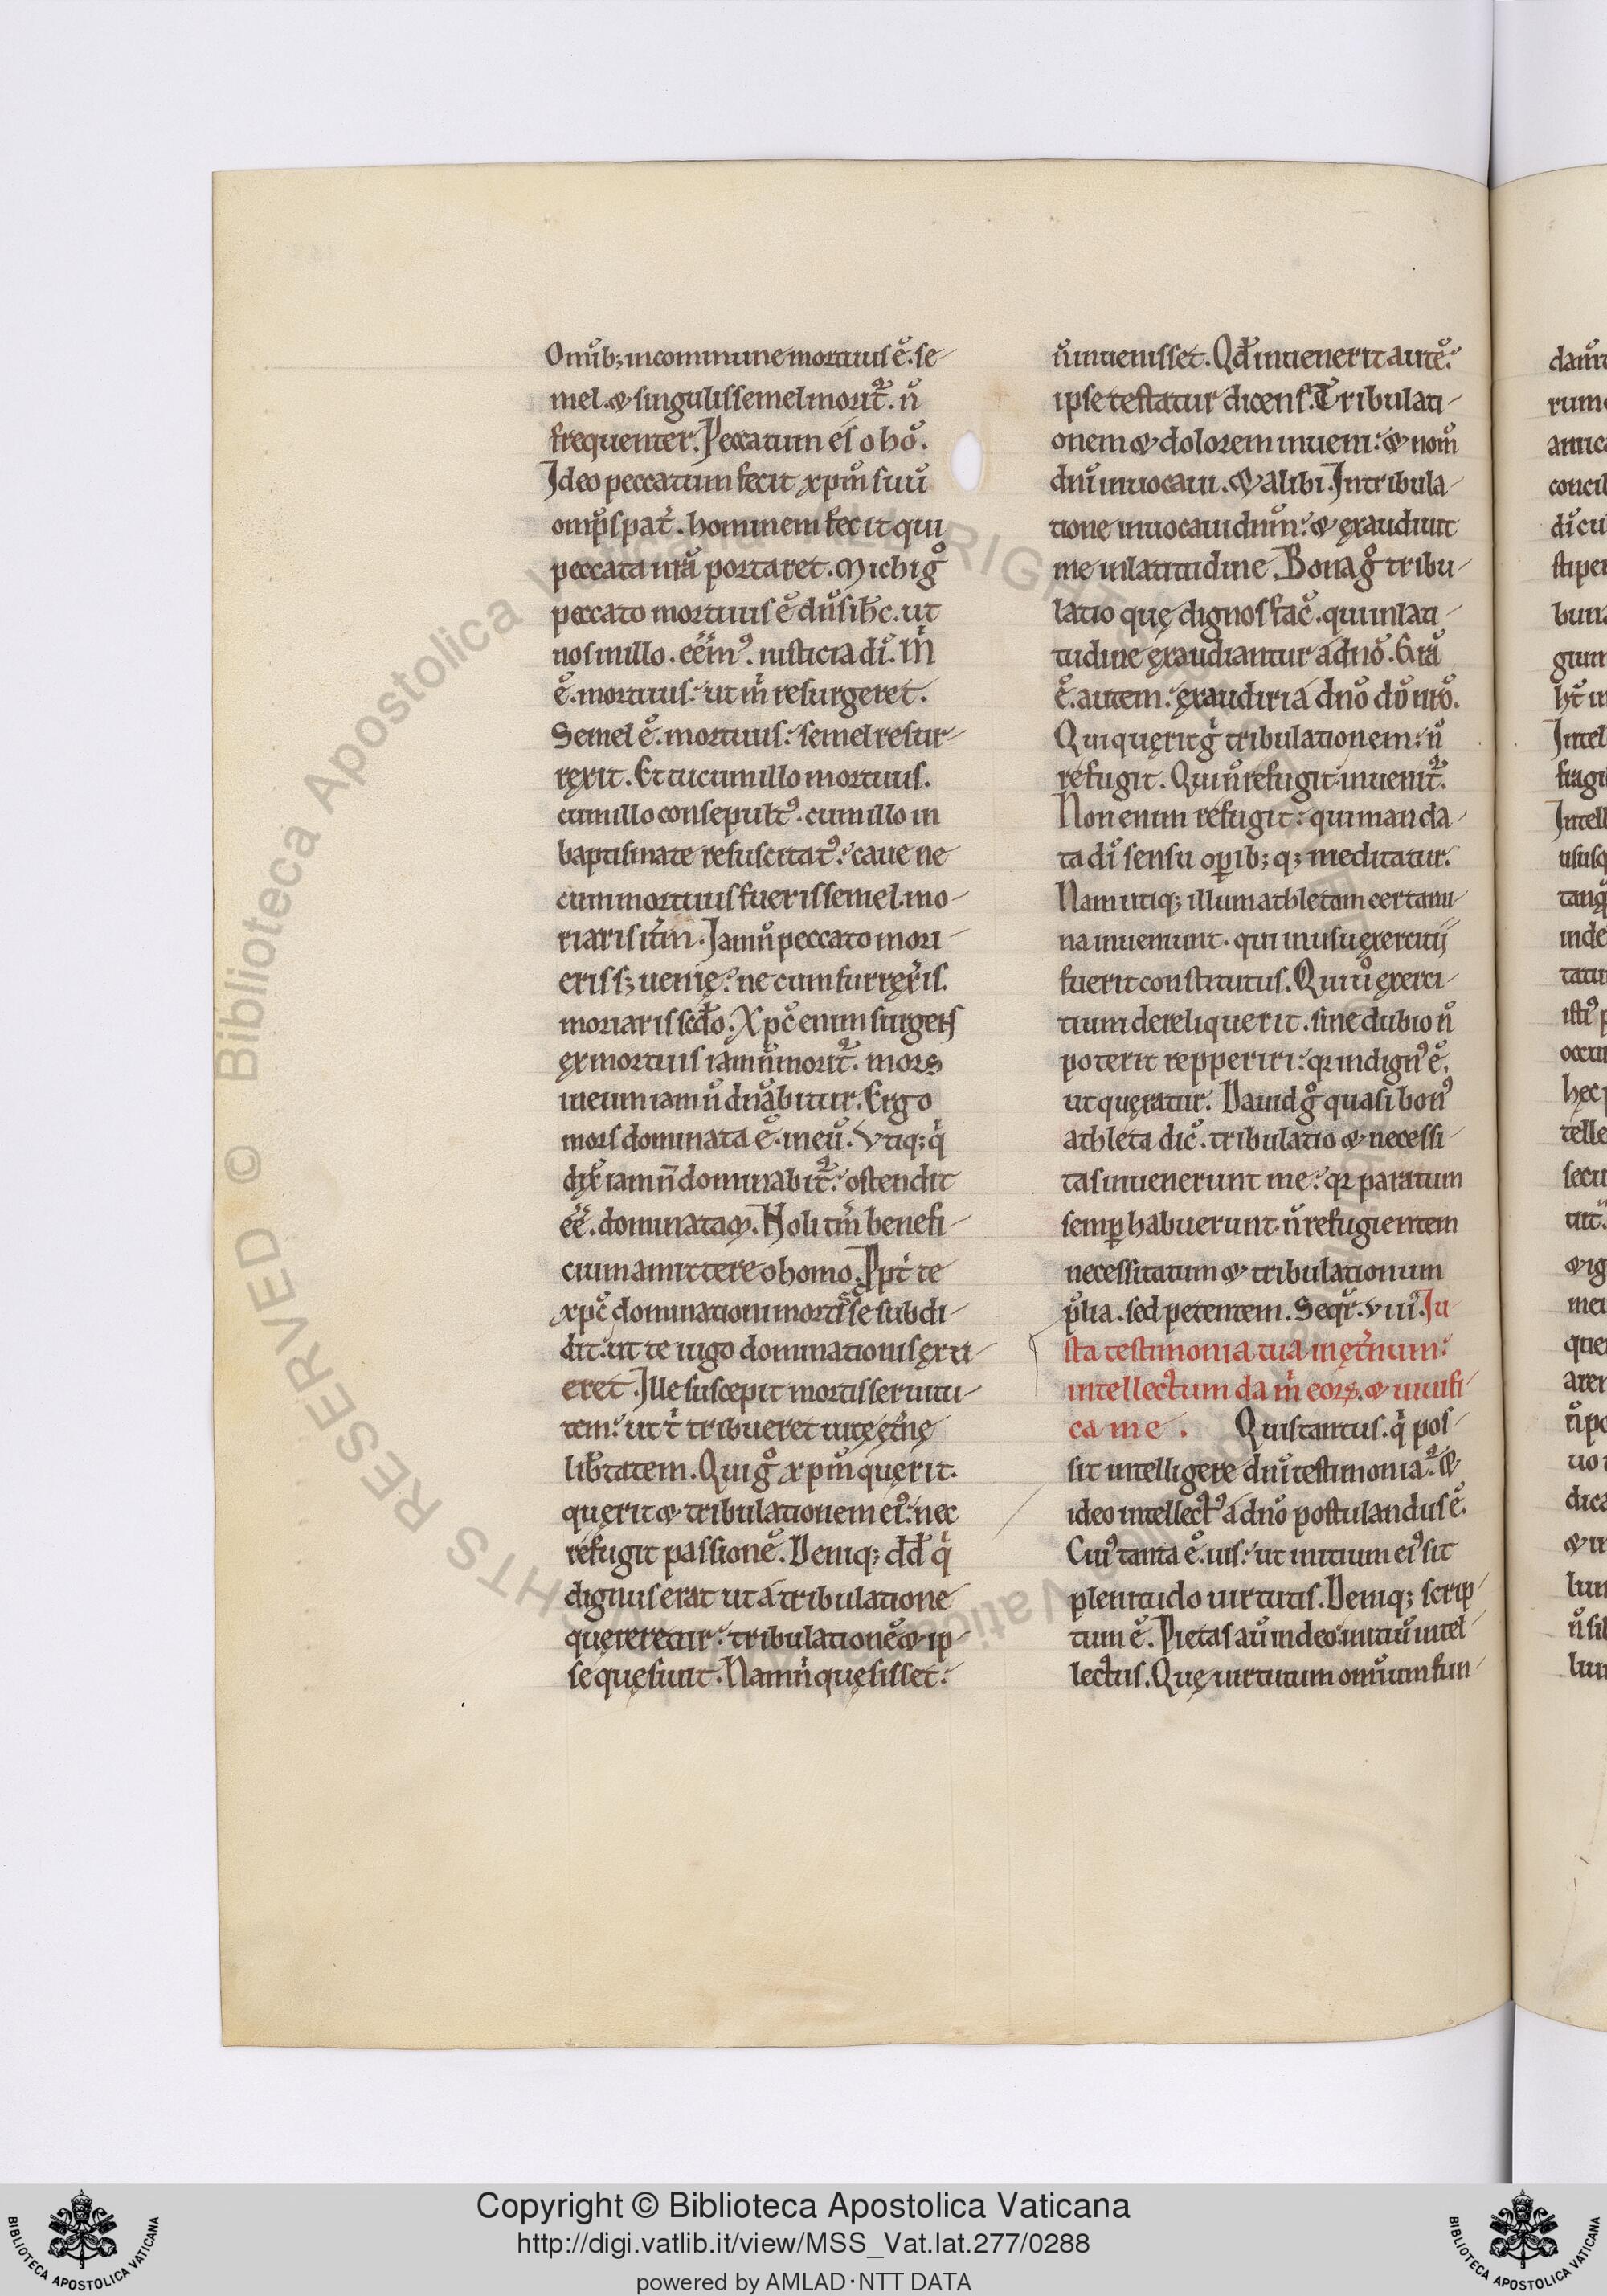 Omĩb; incommune mortuus ẽ. se-
mel. & singulis semel morit᷑. ñ
frequenter. Peccatum es o hõ.
Ideo peccatum fecit xpm̃ suũ
omp̃s pat̃. hominem fecit qui
peccata nr̃a portaret. Michi gͦ
peccato mortuus ẽ dñs ih̃c. ut
nos in illo. eẽm᷒. iusticia dĩ. M̃
ẽ. mortuus: ut m̃ resurgeret.
Semel ẽ. mortuus: semel resur-
rexit. Et tu cum illo mortuus.
cum illo consepult᷒. cum illo in
baptismate resuscitat᷒: caue ne
cum mortuus fueris semel. mo-
riaris it̃m. Iam ñ peccato mori-
eris s; uenię: ne cum surrex̃is.
moriaris scd̃o. Xpc̃ enim surgens
ex mortuis iam ñ morit᷑. mors
in eum iam ñ dñabitur. Ergo
mors dominata ẽ. in eũ. Vtiq; qͥ
dix̃ iam ñ dominabit᷑: ostendit
eẽ. dominatam. Noli tm̃ benefi-
cium amittere o homo. Ppt̃ te
xpc̃ dominationi mortis se subdi-
dit. ut te iugo dominationis exu-
eret. Ille suscepit mortis seruitu-
tem: ut tͥ tribueret uitę et̃nę
lib̃tatem. Qui gͦ xpm̃ querit.
querit & tribulationem ei᷒: nec
refugit passionẽ. Deniq; dd̃ qͥ
dignus erat ut á tribulatione
quereretur: tribulationẽ & ip-
se quęsiuit. Nam nͥ quęsisset:
ñ inuenisset. Qd̃ inuenerit autẽ:
ipse testatur dicens. Tribulati-
onem & dolorem inueni: & nom̃
dñi inuocaui. & alibi. In tribula-
tione inuocaui dnm̃: & exaudiuit
me in latitudine. Bona gͦ tribu-
latio quę dignos fac̃. qui in lati-
tudine exaudiantur á dñõ. Gr̃a
ẽ. autem: exaudiri á dñõ dõ nr̃õ.
Qui querit gͦ tribulationem: ñ
refugit. Qui ñ refugit: inuenit᷑.
Non enim refugit: qui manda-
ta dĩ sensu op̱ib; q; meditatur.
Nam utiq; illum athletam certami-
na inueniunt. qui in usu exercitij
fuerit constitutus. Qui ũ exerci-
tium dereliquerit. sine dubio ñ
poterit repperiri: qꝛ indign᷒ ẽ.
ut queratur. Dauid gͦ quasi bon᷒
athleta dic̃. tribulatio & necessi-
tas inuenerunt me: qꝛ paratum
semp̱ habuerunt. ñ refugientem
necessitatum & tribulationum
p̃lia. sed petentem. Seqr̃. viiiꝰ. Iu-
sta testimonia tua in et̃num:
intellectum da m̃ eorꝝ. & uiuifi-
ca me. Quis tantus. qͥ pos-
sit intelligere dñi testimonia? &
ideo intellect᷒ á dñõ postulandus ẽ.
Cui᷒ tanta ẽ. uis: ut initium ei᷒ sit
plenitudo uirtutis. Deniq; scrip-
tum ẽ. Pietas aũ in deo: initiũ intel-
lectus. Quę uirtutum omĩum fun-
Copyright © Biblioteca Apostolica Vaticana
http://digi.vatlib.it/view/MSS_Vat.lat.277/0288
powered by AMLAD·NTT DATA